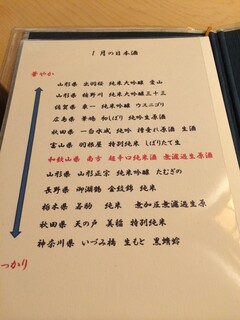 1月の日本酒
華やか
山形県 出羽桜 純米大吟醸 愛山
山形県 楯野川 純米大吟醸 三十三
佐賀県 東一 純米吟醸 ウスニゴリ
広島県 華鳩 初しぼり 純吟生原酒
秋田県 一白水成 純吟 槽垂れ原酒 生酒
富山県 羽根屋 特別純米 しぼりたて生
和歌山県 南方 超辛口純米酒 無濾過生原酒
山形県 山形正宗 純米吟醸 たむざの
長野県 御湖鶴 金紋錦 純米
栃木県 若駒 純米 無加圧無濾過生原
秋田県 天の戸 美稲 特別純米
神奈川県 いづみ橋 生もと 黒蜻蛉
っかり